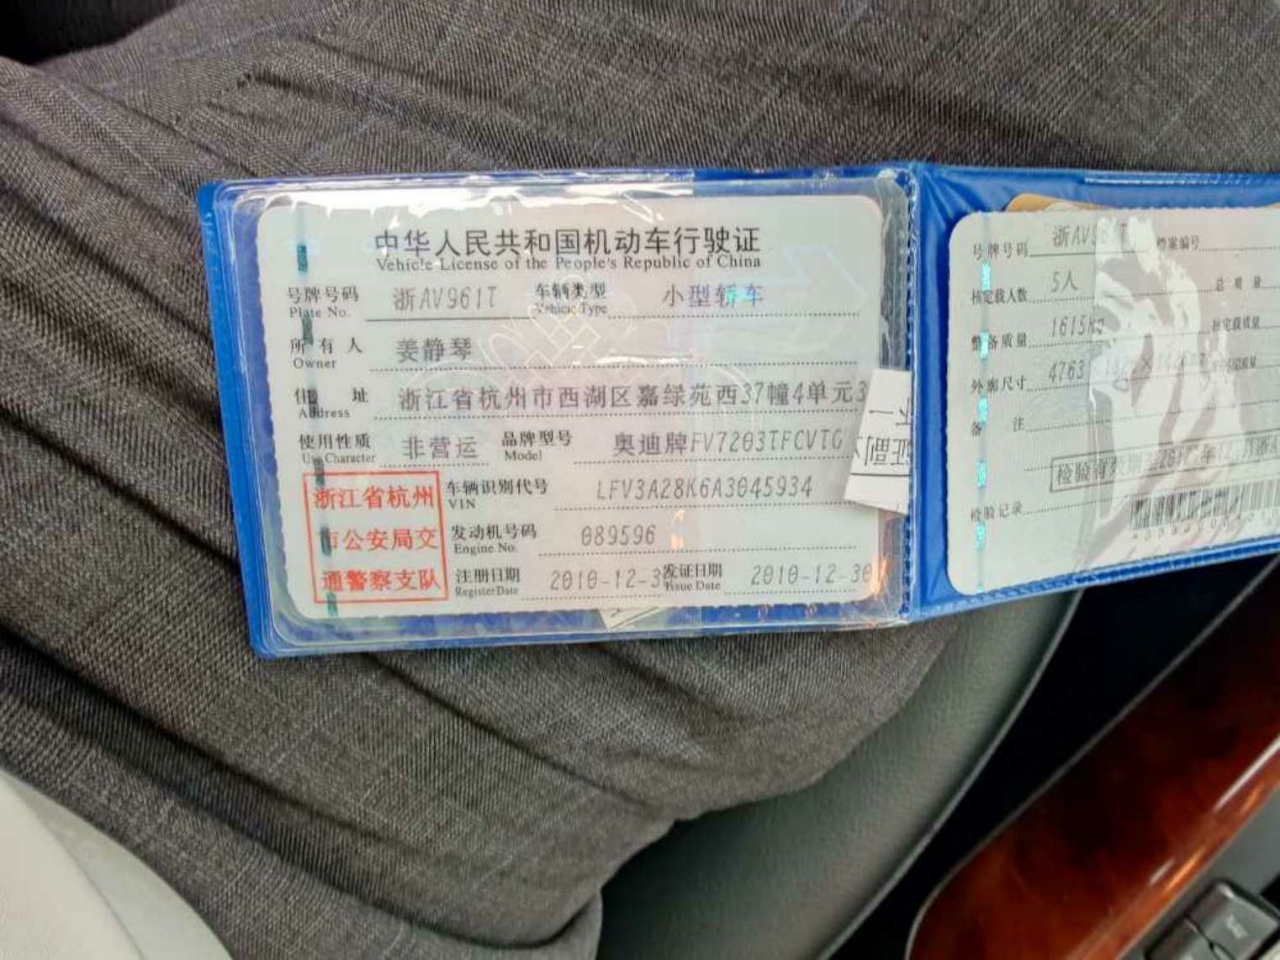 中华人民共和国机动车行驶证
Vehicle License of the People's Republic of China
号牌号码 浙AV961T 车辆类型 小型轿车
Plate No. Vehicle Type
所有人 姜静琴
Owner
住址 浙江省杭州市西湖区嘉绿苑西37幢4单元3
Address
使用性质 非营运 品牌型号 奥迪牌FV7203TFCVTG
Use Character Model
浙江省杭州
市公安局交
通警察支队
车辆识别代号 LFV3A28K6A3045934
VIN
发动机号码 089596
Engine No.
注册日期 2010-12-3 发证日期 2010-12-30
Register Date Issue Date
证副
号牌号码 浙AV961T 档案编号
核定载人数 5人 总质量
整备质量 1615kg 核定载质量
外廓尺寸 4763
备注
检验记录